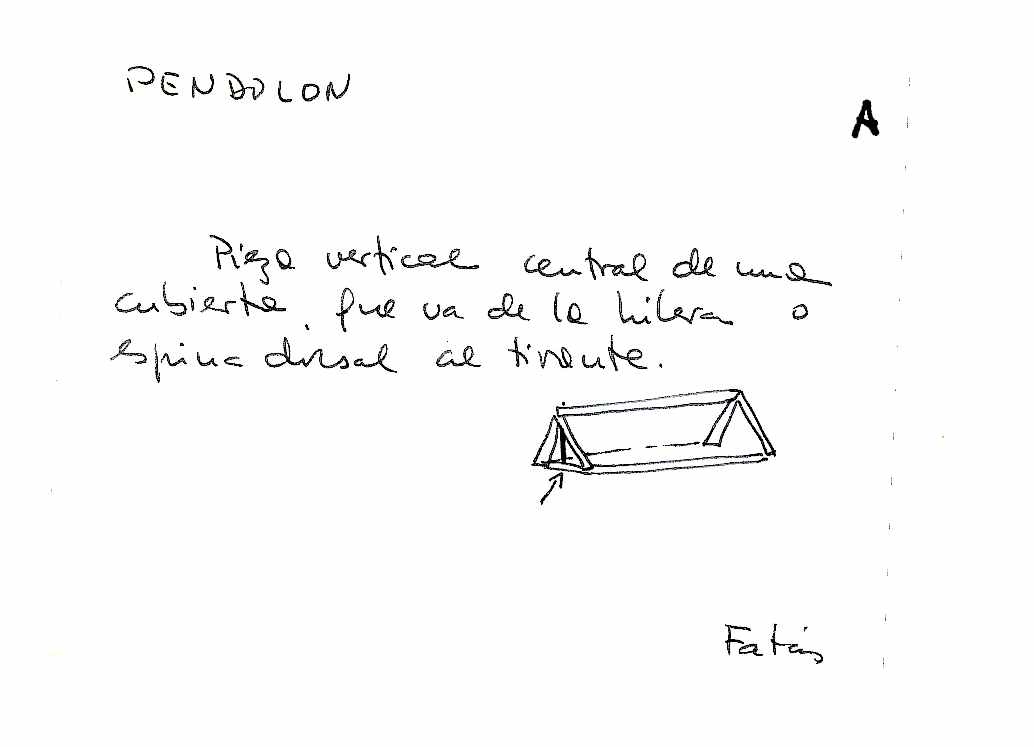 PENDOLON
A
Pieza vertical central de una
cubierta, que va de la hilera o
espina dorsal al tirante.
Fatás